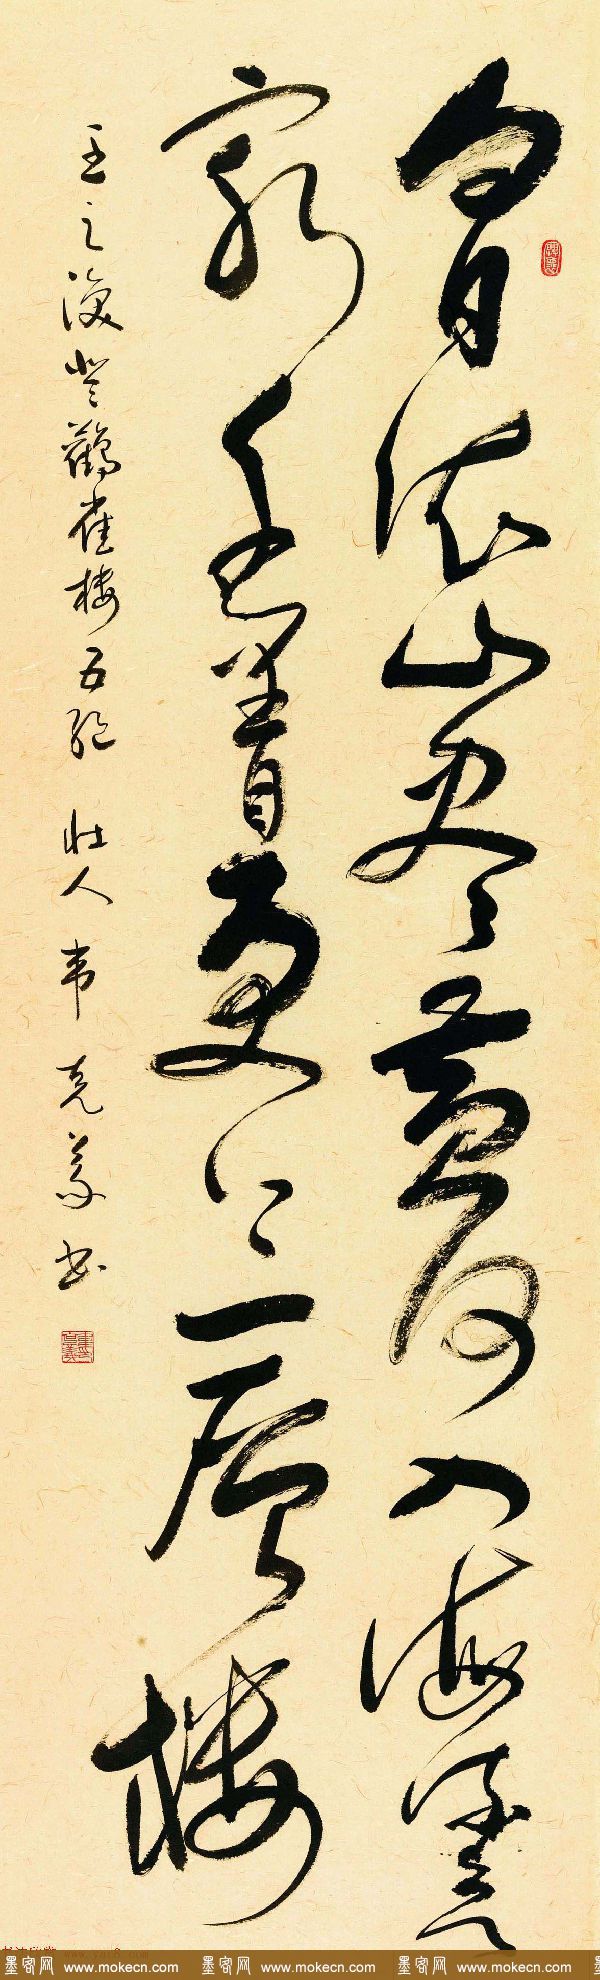 白日依山尽黄河入海流欲
穷千里目更上一层楼
王之涣登鹳雀楼五绝 壮人韦克义书
墨客网 www.mokecn.com 墨客网 www.mokecn.com 墨客网 www.mokecn.com